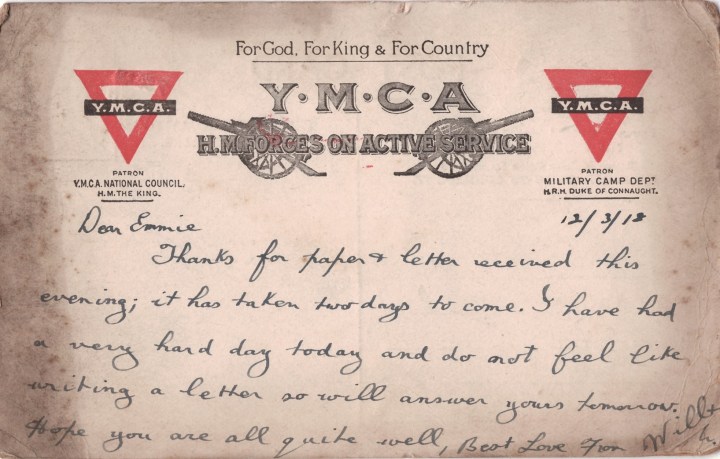 For God, For King & For Country
Y.M.C.A
H.M. FORCES ON ACTIVE SERVICE
Y.M.C.A.
PATRON
Y.M.C.A. NATIONAL COUNCIL.
H.M. THE KING.
Y.M.C.A.
PATRON
MILITARY CAMP DEPT
H.R.H. DUKE OF CONNAUGHT.
12/3/18
Dear Emmie
Thanks for paper & letter received this
evening; it has taken two days to come. I have had
a very hard day today and do not feel like
writing a letter so will answer yours tomorrow.
Hope you are all quite well, Best Love from Will